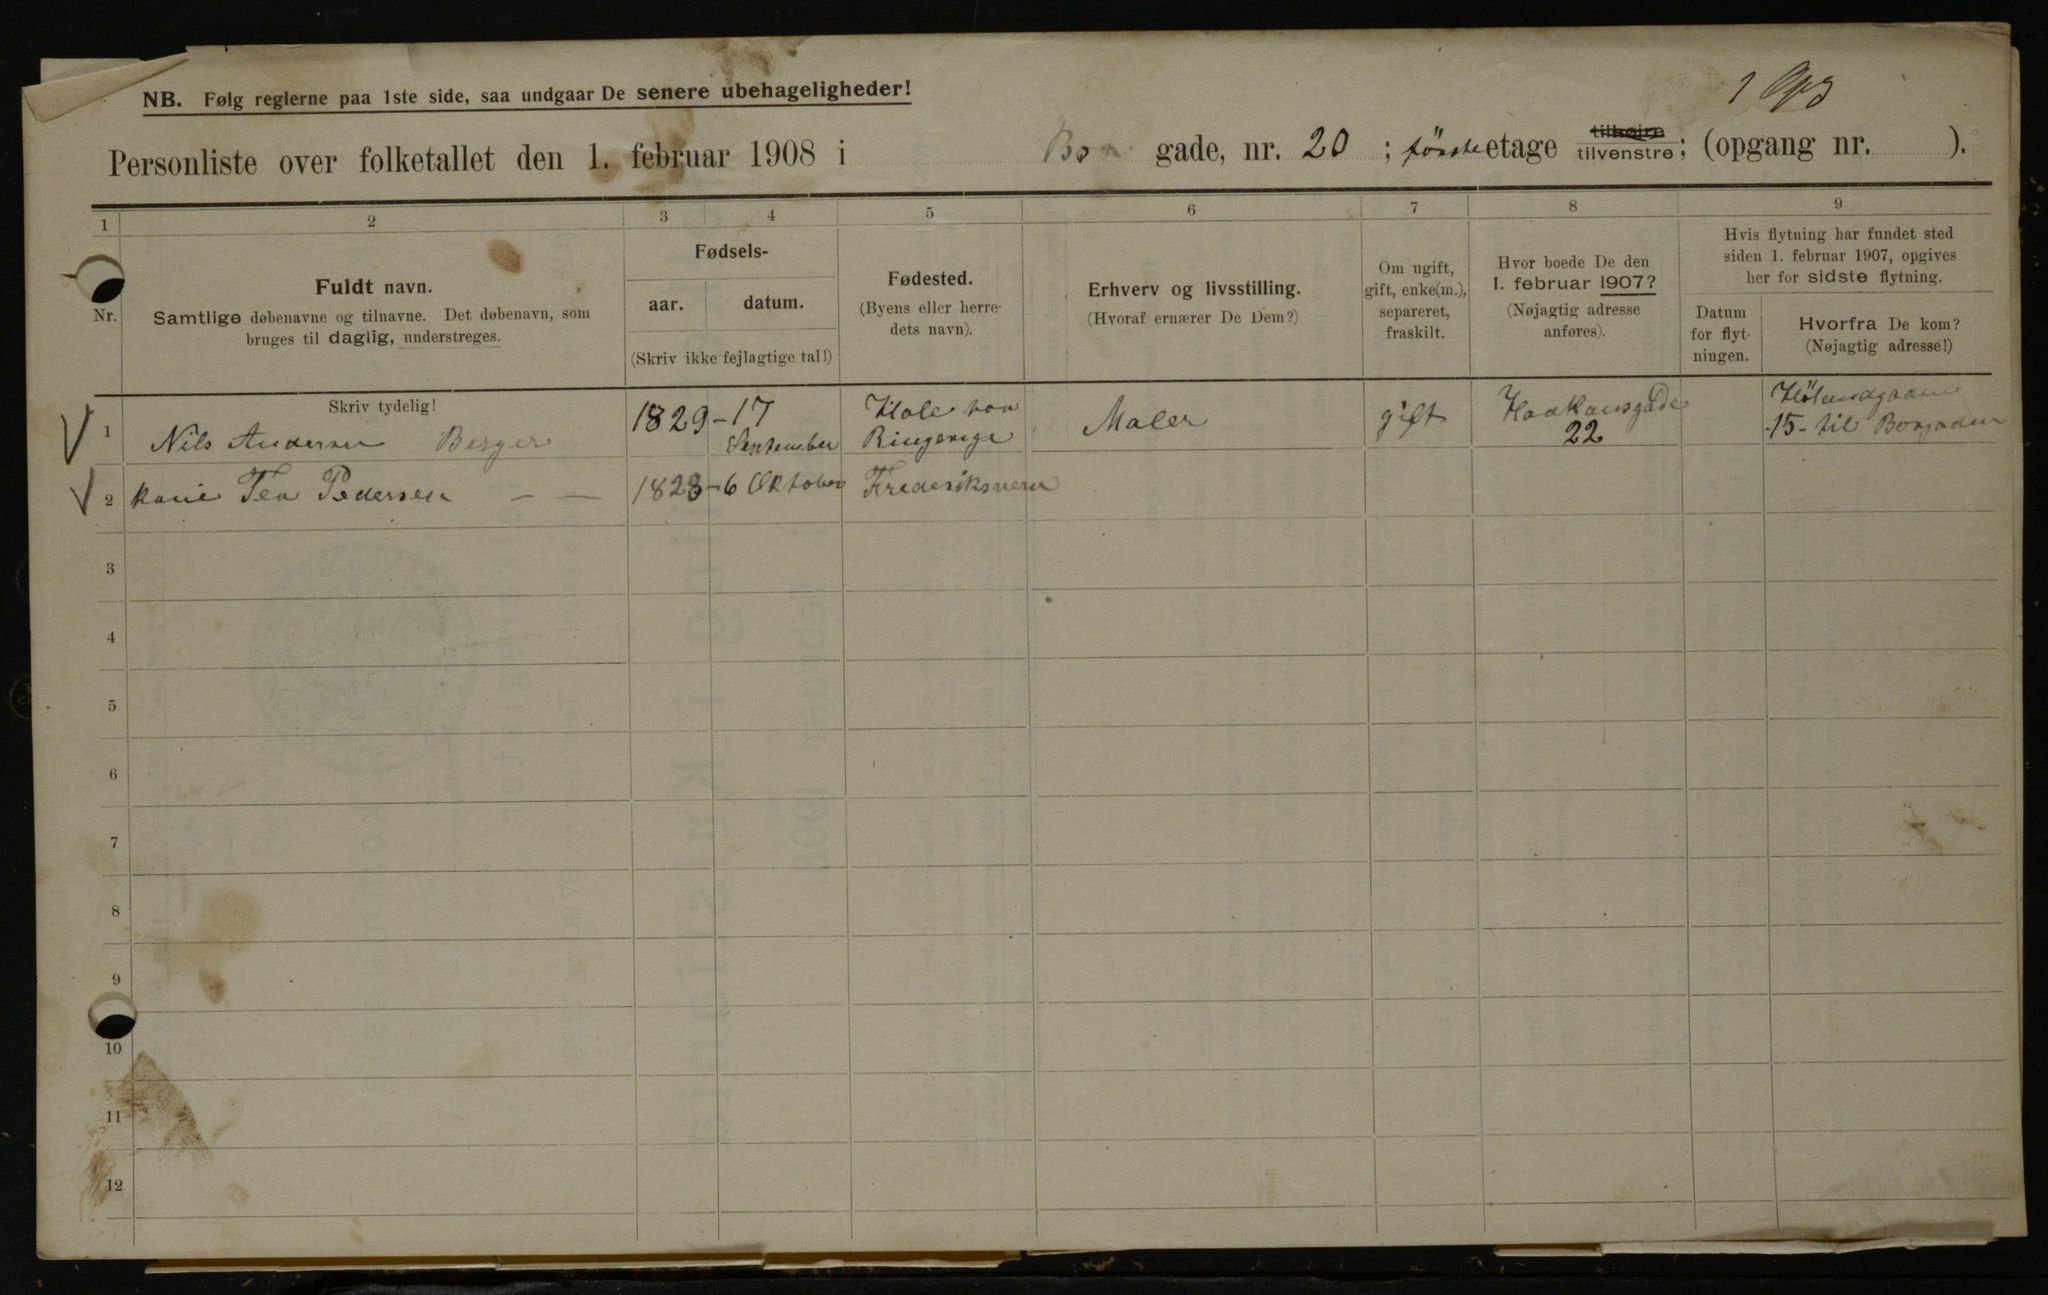 NB. Følg reglerne paa 1ste side, saa undgaar De senere ubehageligheder!
Personliste over folketallet den 1. februar 1908 i Bor gade, nr. 20 ; første etage tilhøire tilvenstre; (opgang nr. ).
1 2 3 4 5 6 7 8 9
Nr.
Fuldt navn.
Samtlige døbenavne og tilnavne. Det døbenavn, som
bruges til daglig, understreges.
Fødsels-
aar. datum.
(Skriv ikke fejlagtige tal!)
Fødested.
(Byens eller herre-
dets navn).
Erhverv og livsstilling.
(Hvoraf ernærer De Dem?)
Om ugift,
gift, enke(m.),
separeret,
fraskilt.
Hvor boede De den
1. februar 1907?
(Nøjagtig adresse
anføres).
Hvis flytning har fundet sted
siden 1. februar 1907, opgives
her for sidste flytning.
Datum
for flyt-
ningen.
Hvorfra De kom?
(Nøjagtig adresse!)
Skriv tydelig!
1 Nils Andersen Berger 1829 - 17 September Hole paa Ringerige Maler gift Haakansgade 22 15 - til Borgaden
2 Kone Tea Pedersen — — 1828 - 6 Oktober Frederiksværn
3
4
5
6
7
8
9
10
11
12